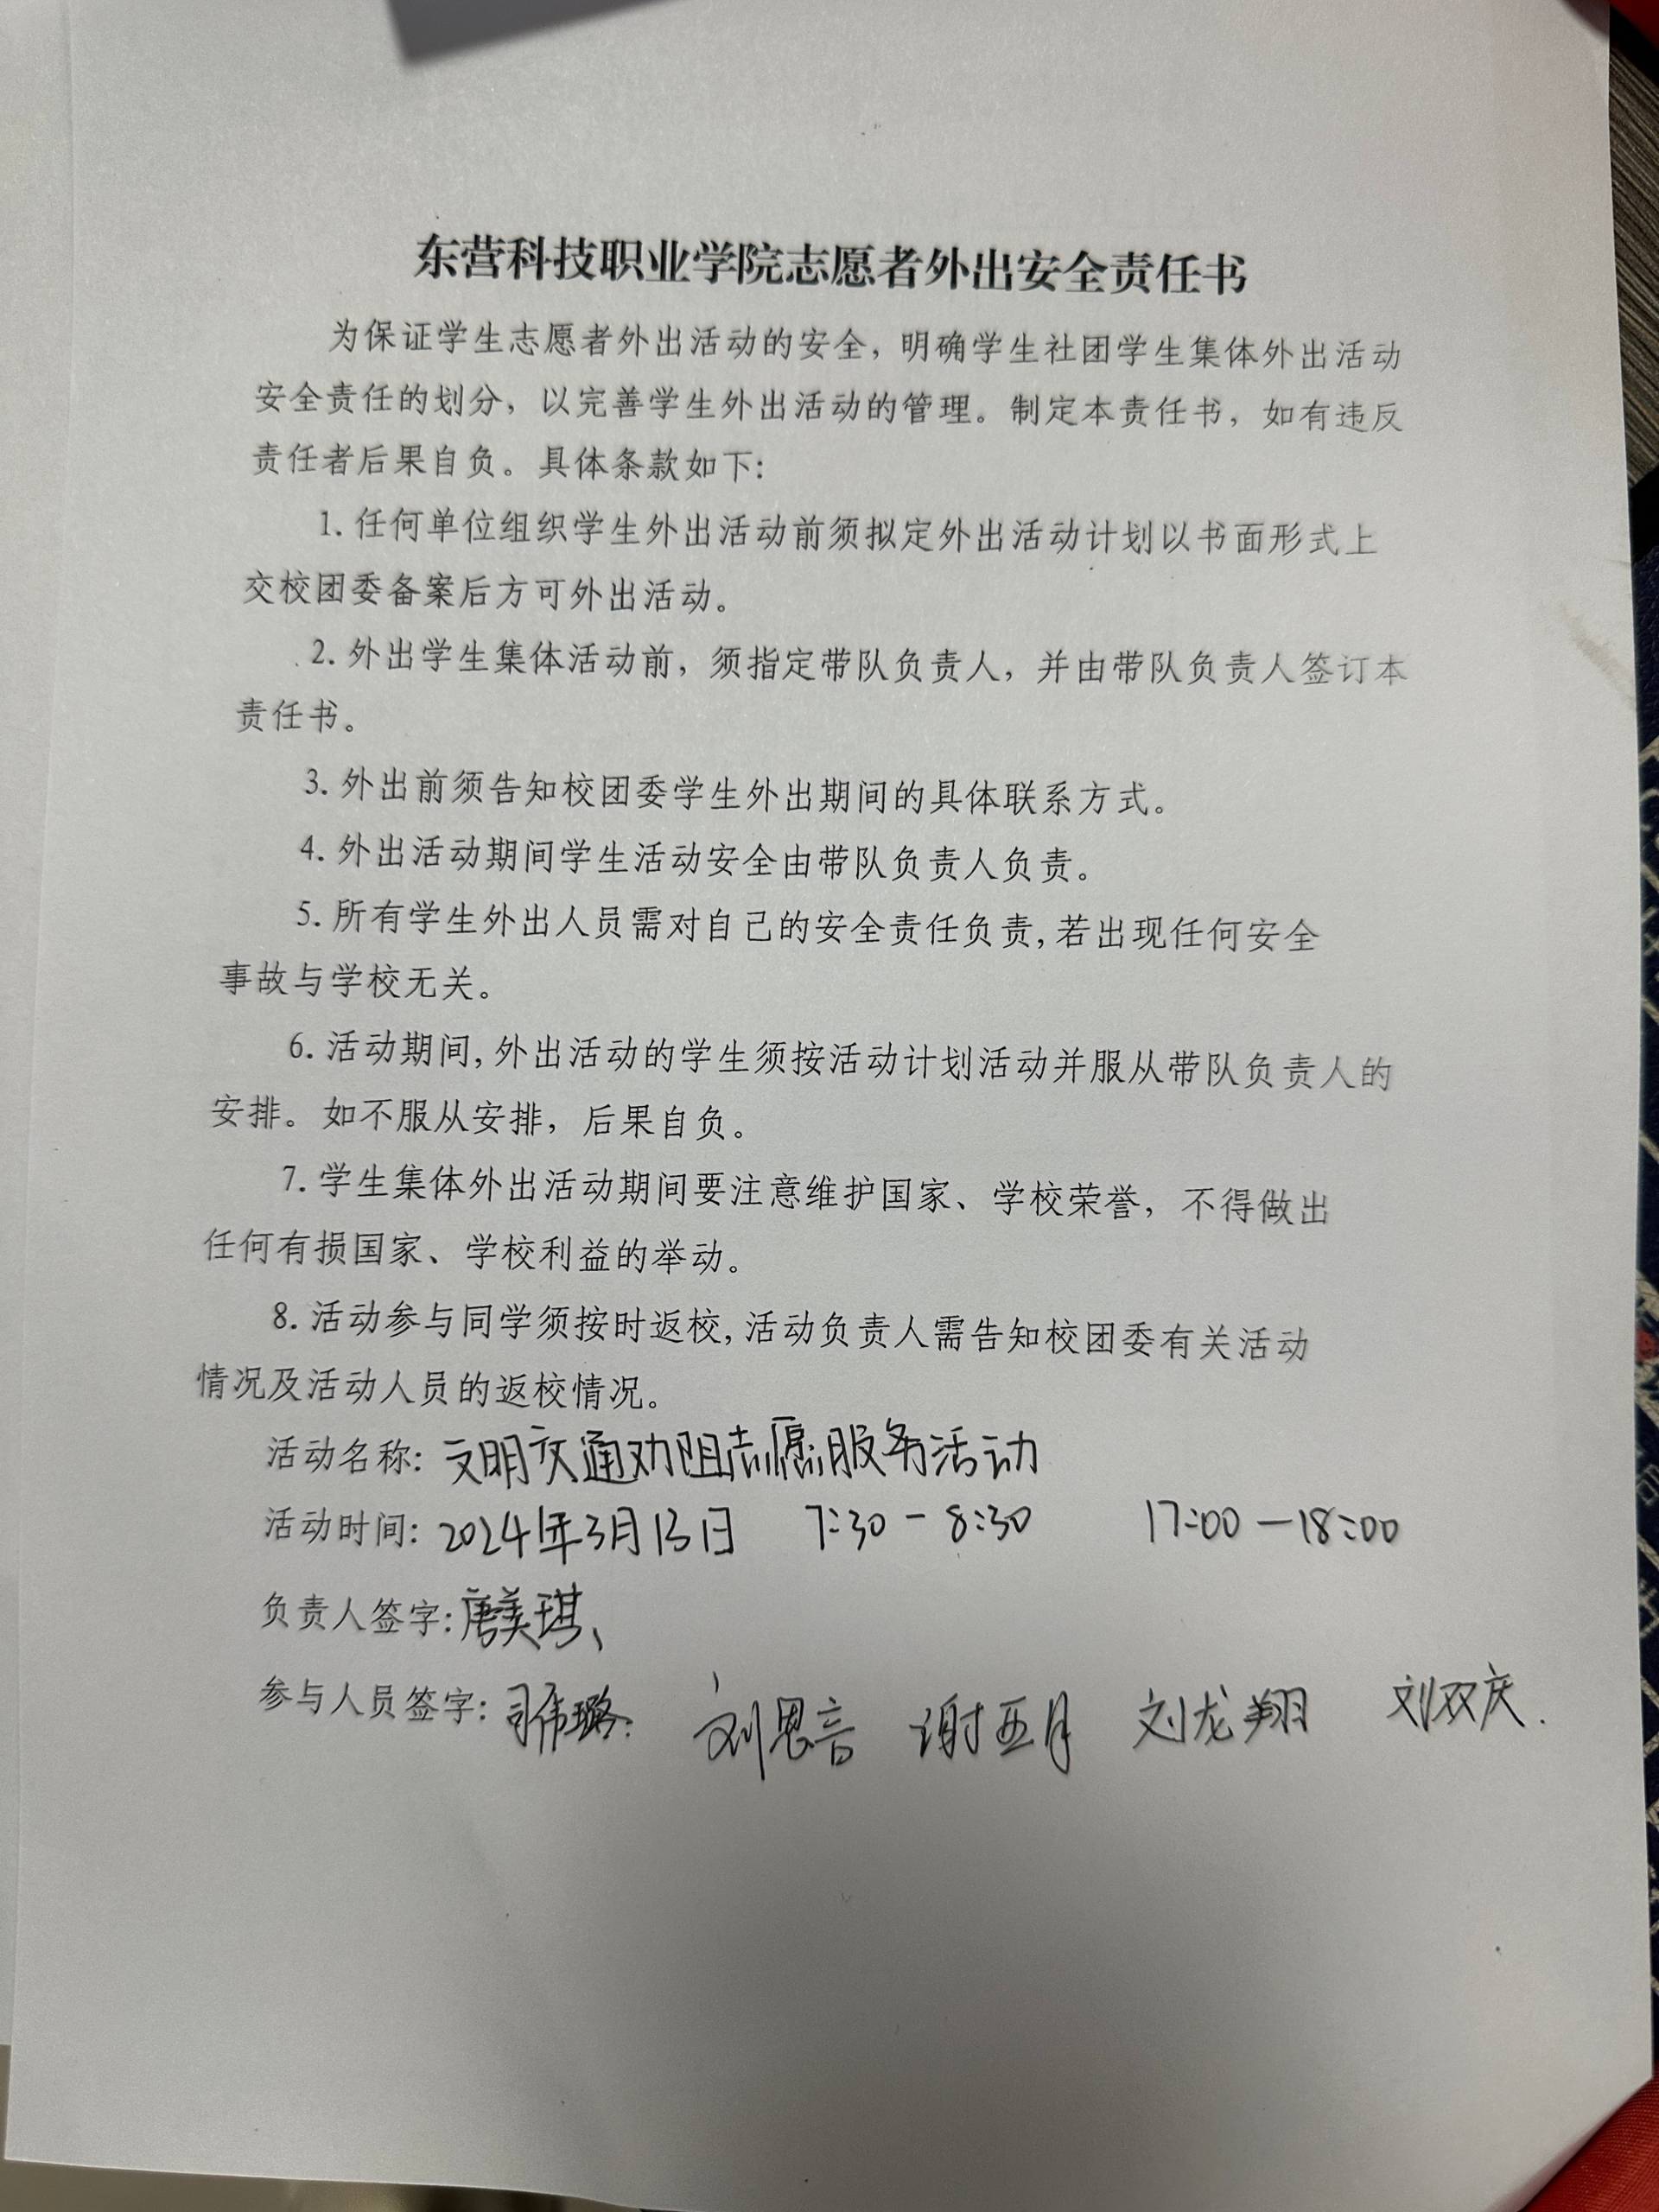 东营科技职业学院志愿者外出安全责任书
为保证学生志愿者外出活动的安全，明确学生社团学生集体外出活动
安全责任的划分，以完善学生外出活动的管理。制定本责任书，如有违反
责任者后果自负。具体条款如下：
1. 任何单位组织学生外出活动前须拟定外出活动计划以书面形式上
交校团委备案后方可外出活动。
2. 外出学生集体活动前，须指定带队负责人，并由带队负责人签订本
责任书。
3. 外出前须告知校团委学生外出期间的具体联系方式。
4. 外出活动期间学生活动安全由带队负责人负责。
5. 所有学生外出人员需对自己的安全责任负责,若出现任何安全
事故与学校无关。
6. 活动期间,外出活动的学生须按活动计划活动并服从带队负责人的
安排。如不服从安排，后果自负。
7. 学生集体外出活动期间要注意维护国家、学校荣誉，不得做出
任何有损国家、学校利益的举动。
8. 活动参与同学须按时返校,活动负责人需告知校团委有关活动
情况及活动人员的返校情况。
活动名称：文明交通劝阻志愿服务活动
活动时间：2024年3月13日 7:30－8:30 17:00－18:00
负责人签字：唐美琪、
参与人员签字：司伟璐. 刘恩言 谢亚月 刘龙翔 刘双庆.